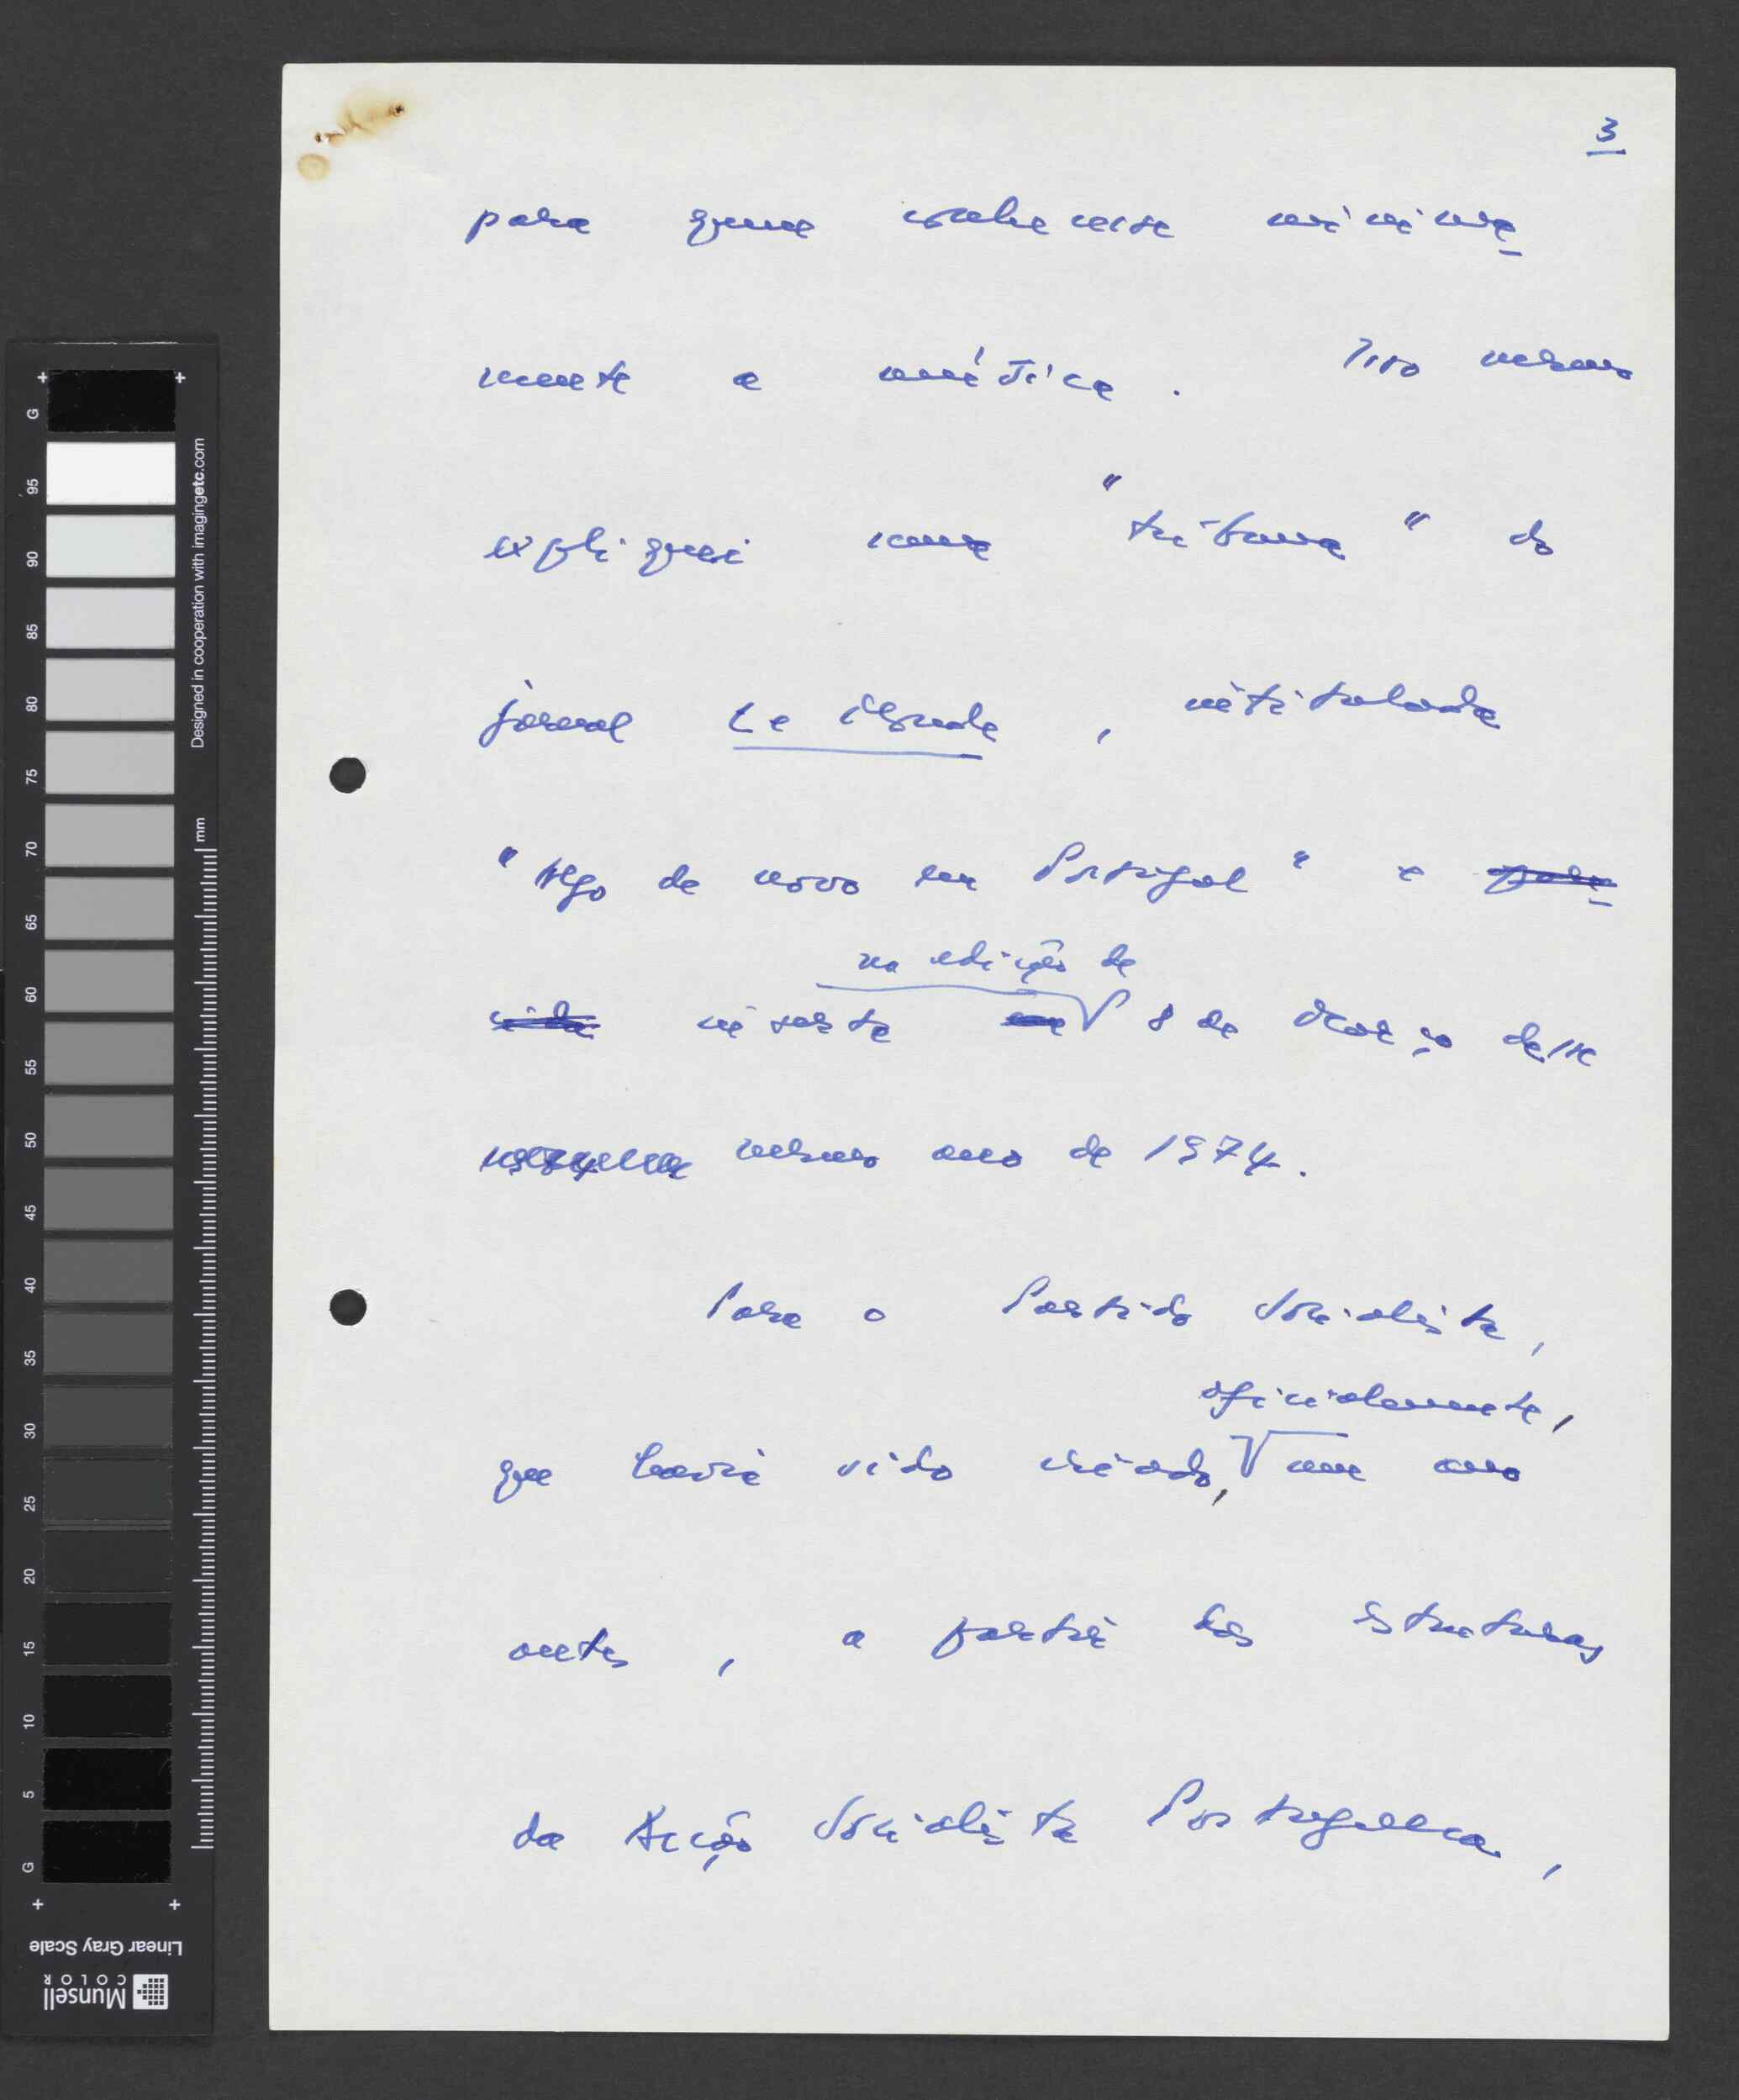 3
para quem conhecesse minima-
mente a mítica. Isso mesmo
expliquei numa "tribuna" do
jornal Le Monde, intitulada
"Algo de novo em Portugal" e
na edição de
inserta 8 de Março desse
mesmo ano de 1974.
Para o Partido Socialista,
oficialmente,
que havia sido criado, um ano
antes, a partir das estruturas
da Acção Socialista Portuguesa,
G
95
90
85
80
75
70
65
60
55
50
45
40
35
30
25
20
15
10
5
G
Designed in cooperation with imagingetc.com
mm
Linear Gray Scale
Munsell
COLOR